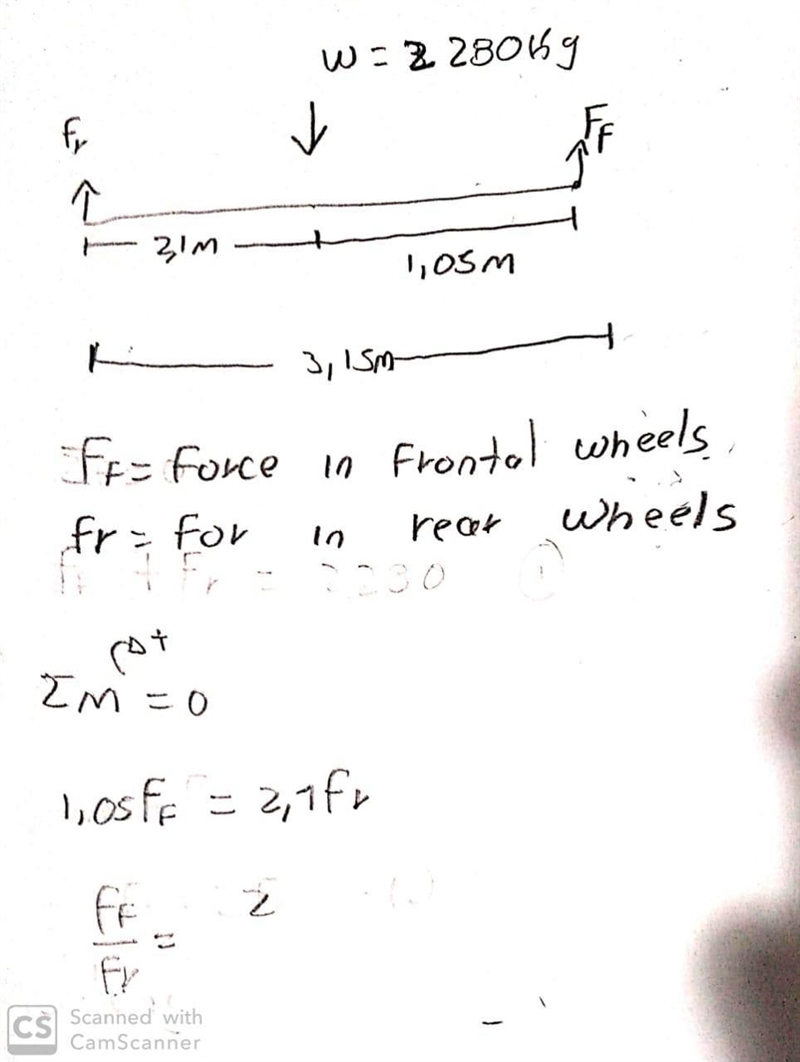 W = 2 280Kg
Fr
FF
2,1M
1,05M
3,15M
FF = Force in Frontal wheels
fr = for in rear wheels
+
ΣM = 0
1,05 fF = 2,1 fr
fF / Fr = 2
CS Scanned with CamScanner